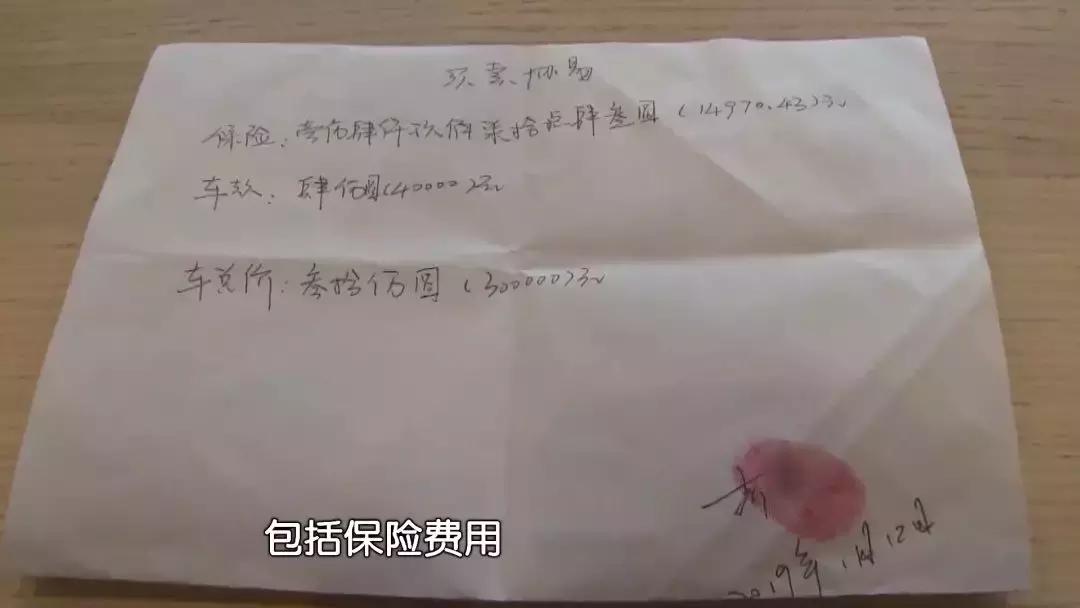 买卖协易
保险：壹万肆仟玖佰柒拾点肆叁圆（14970.43）元
车款：肆万圆（40000）元
车总价：叁拾万圆（300000）元
2019年1月12日
包括保险费用